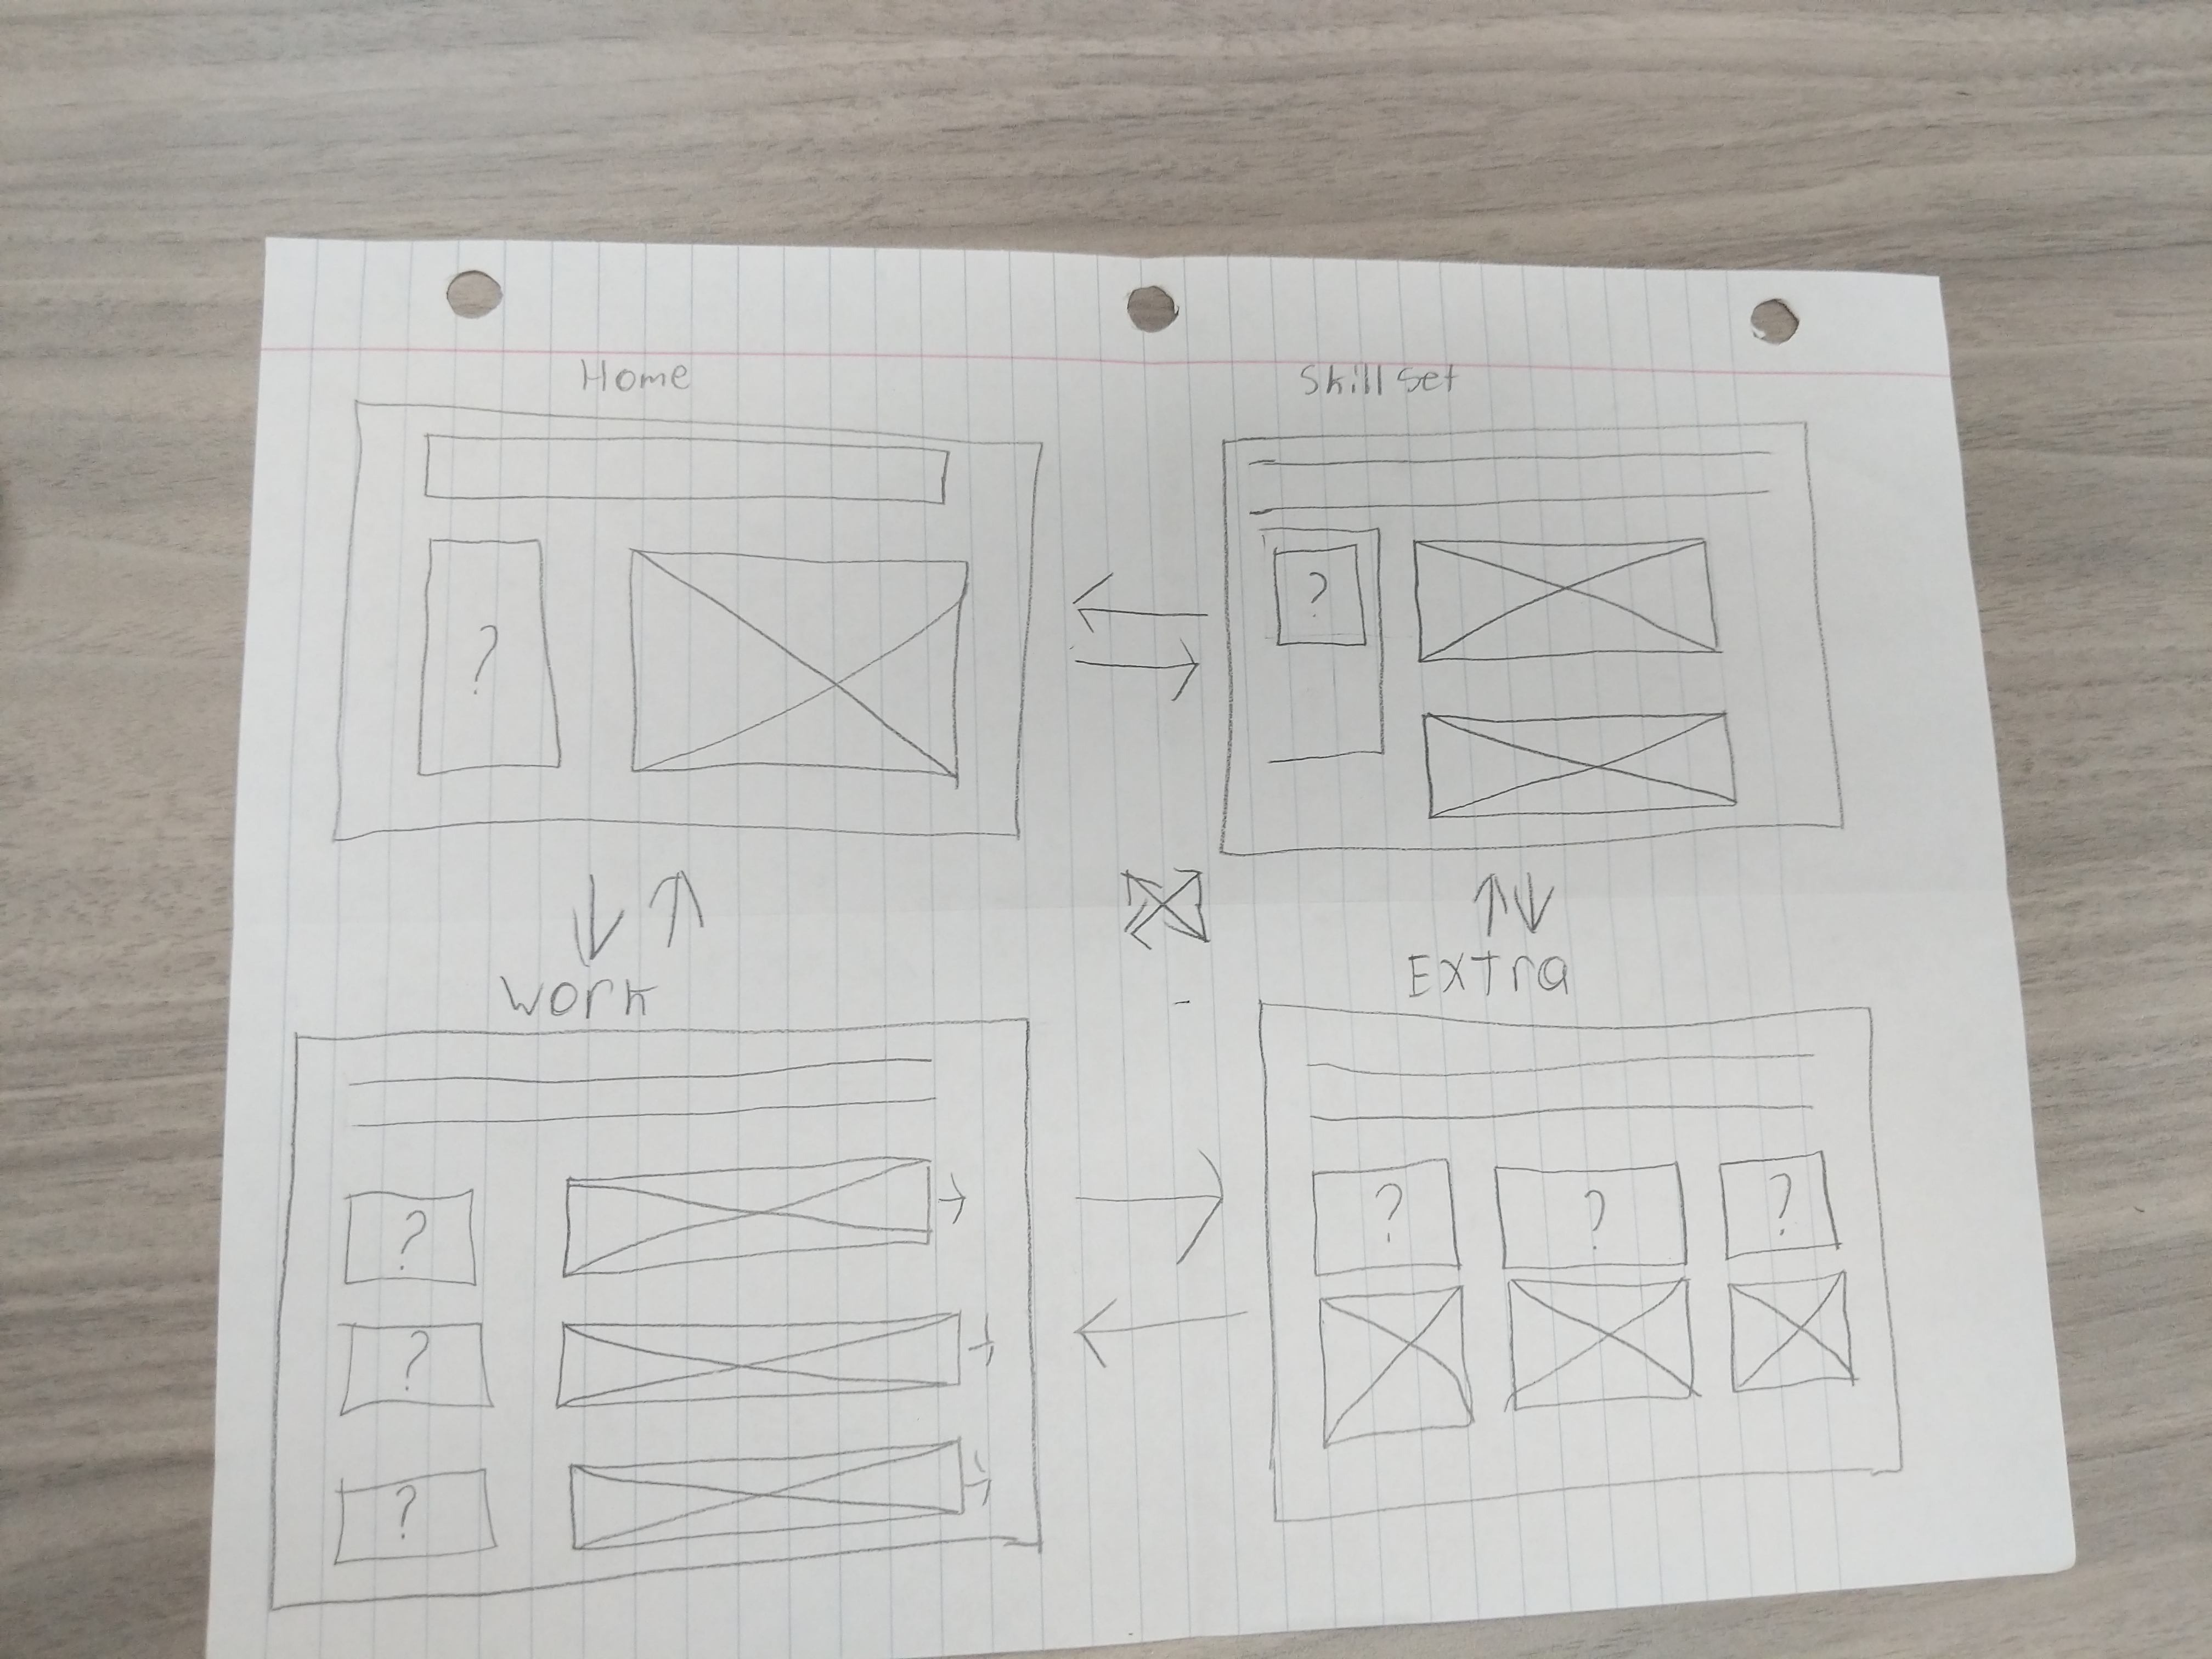 Home
Skill Set
?
?
Work
Extra
?
?
?
?
?
?